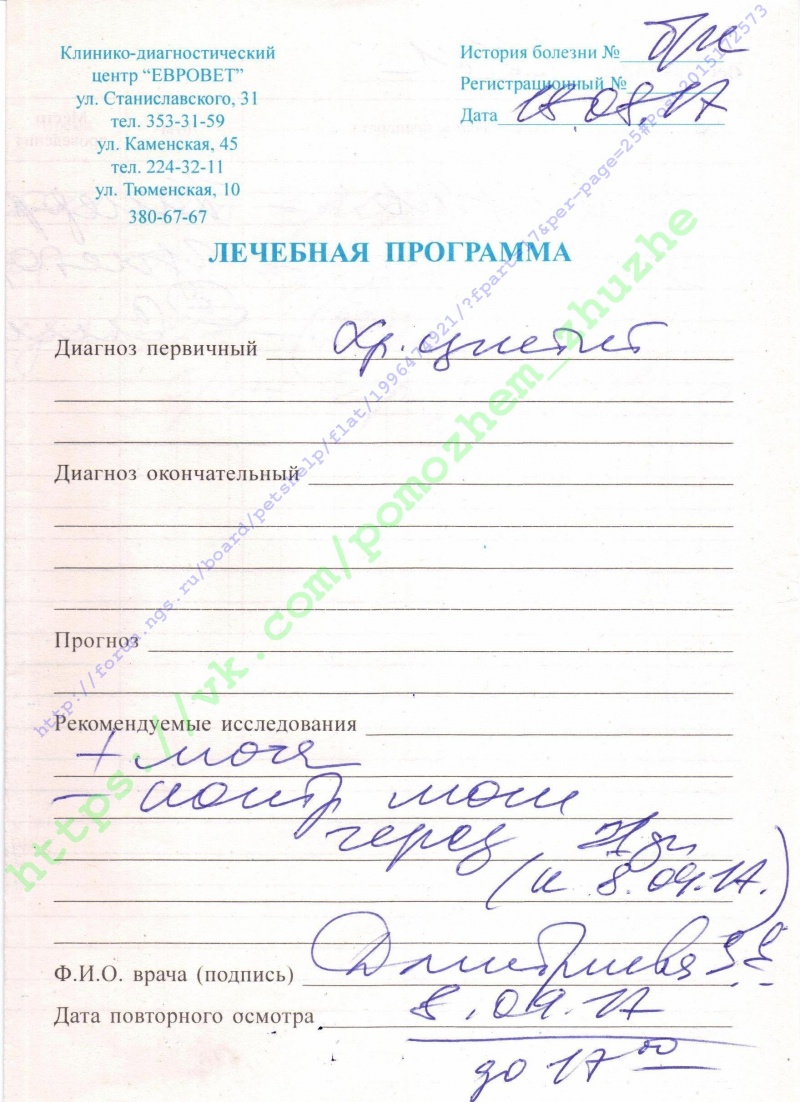 Клинико-диагностический
центр “ЕВРОВЕТ”
ул. Станиславского, 31
тел. 353-31-59
ул. Каменская, 45
тел. 224-32-11
ул. Тюменская, 10
380-67-67
История болезни №
Регистрационный №
Дата 18.08.17
ЛЕЧЕБНАЯ ПРОГРАММА
Диагноз первичный Хр. цистит
Диагноз окончательный
Прогноз
Рекомендуемые исследования
+ моча
— контр мочи
через 21 дн
(к 8.09.17.)
Ф.И.О. врача (подпись) Дмитриева
Дата повторного осмотра 8.09.17
до 17 00
http://forum.ngs.ru/board/petshelp/flat/1996474921/?fpart=17&per-page=25#Post2015172573
https://vk.com/pomozhem_zhuzhe